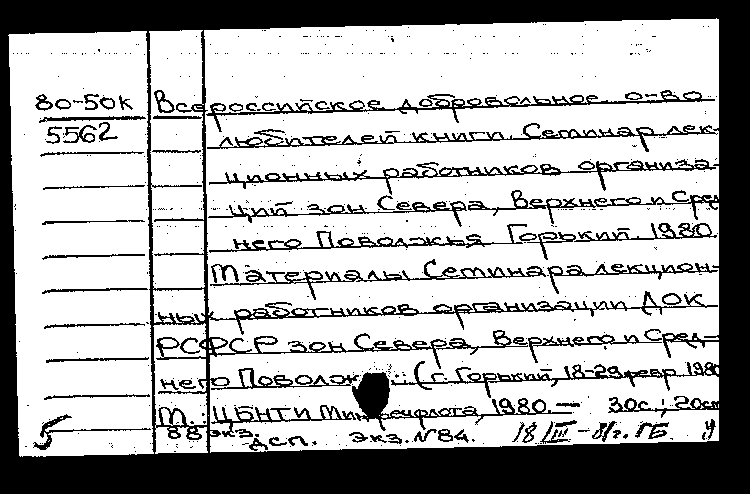 80-50к Всероссийское добровольное о-во
5562 любителей книги. Семинар лек-
ционных работников организа-
ций зон Севера, Верхнего и Сред
него Поволжья Горький. 1980.
Материалы Семинара лекцион-
ных работников организации ДОК
РСФСР зон Севера, Верхнего и Сред-
него Поволж (г. Горький, 18-29 февр 1980
М.: ЦБНТИ Минречфлота, 1980. — 30с.; 20см
5 88 экз. дсп. экз. №84. 18/III-81г. ГБ